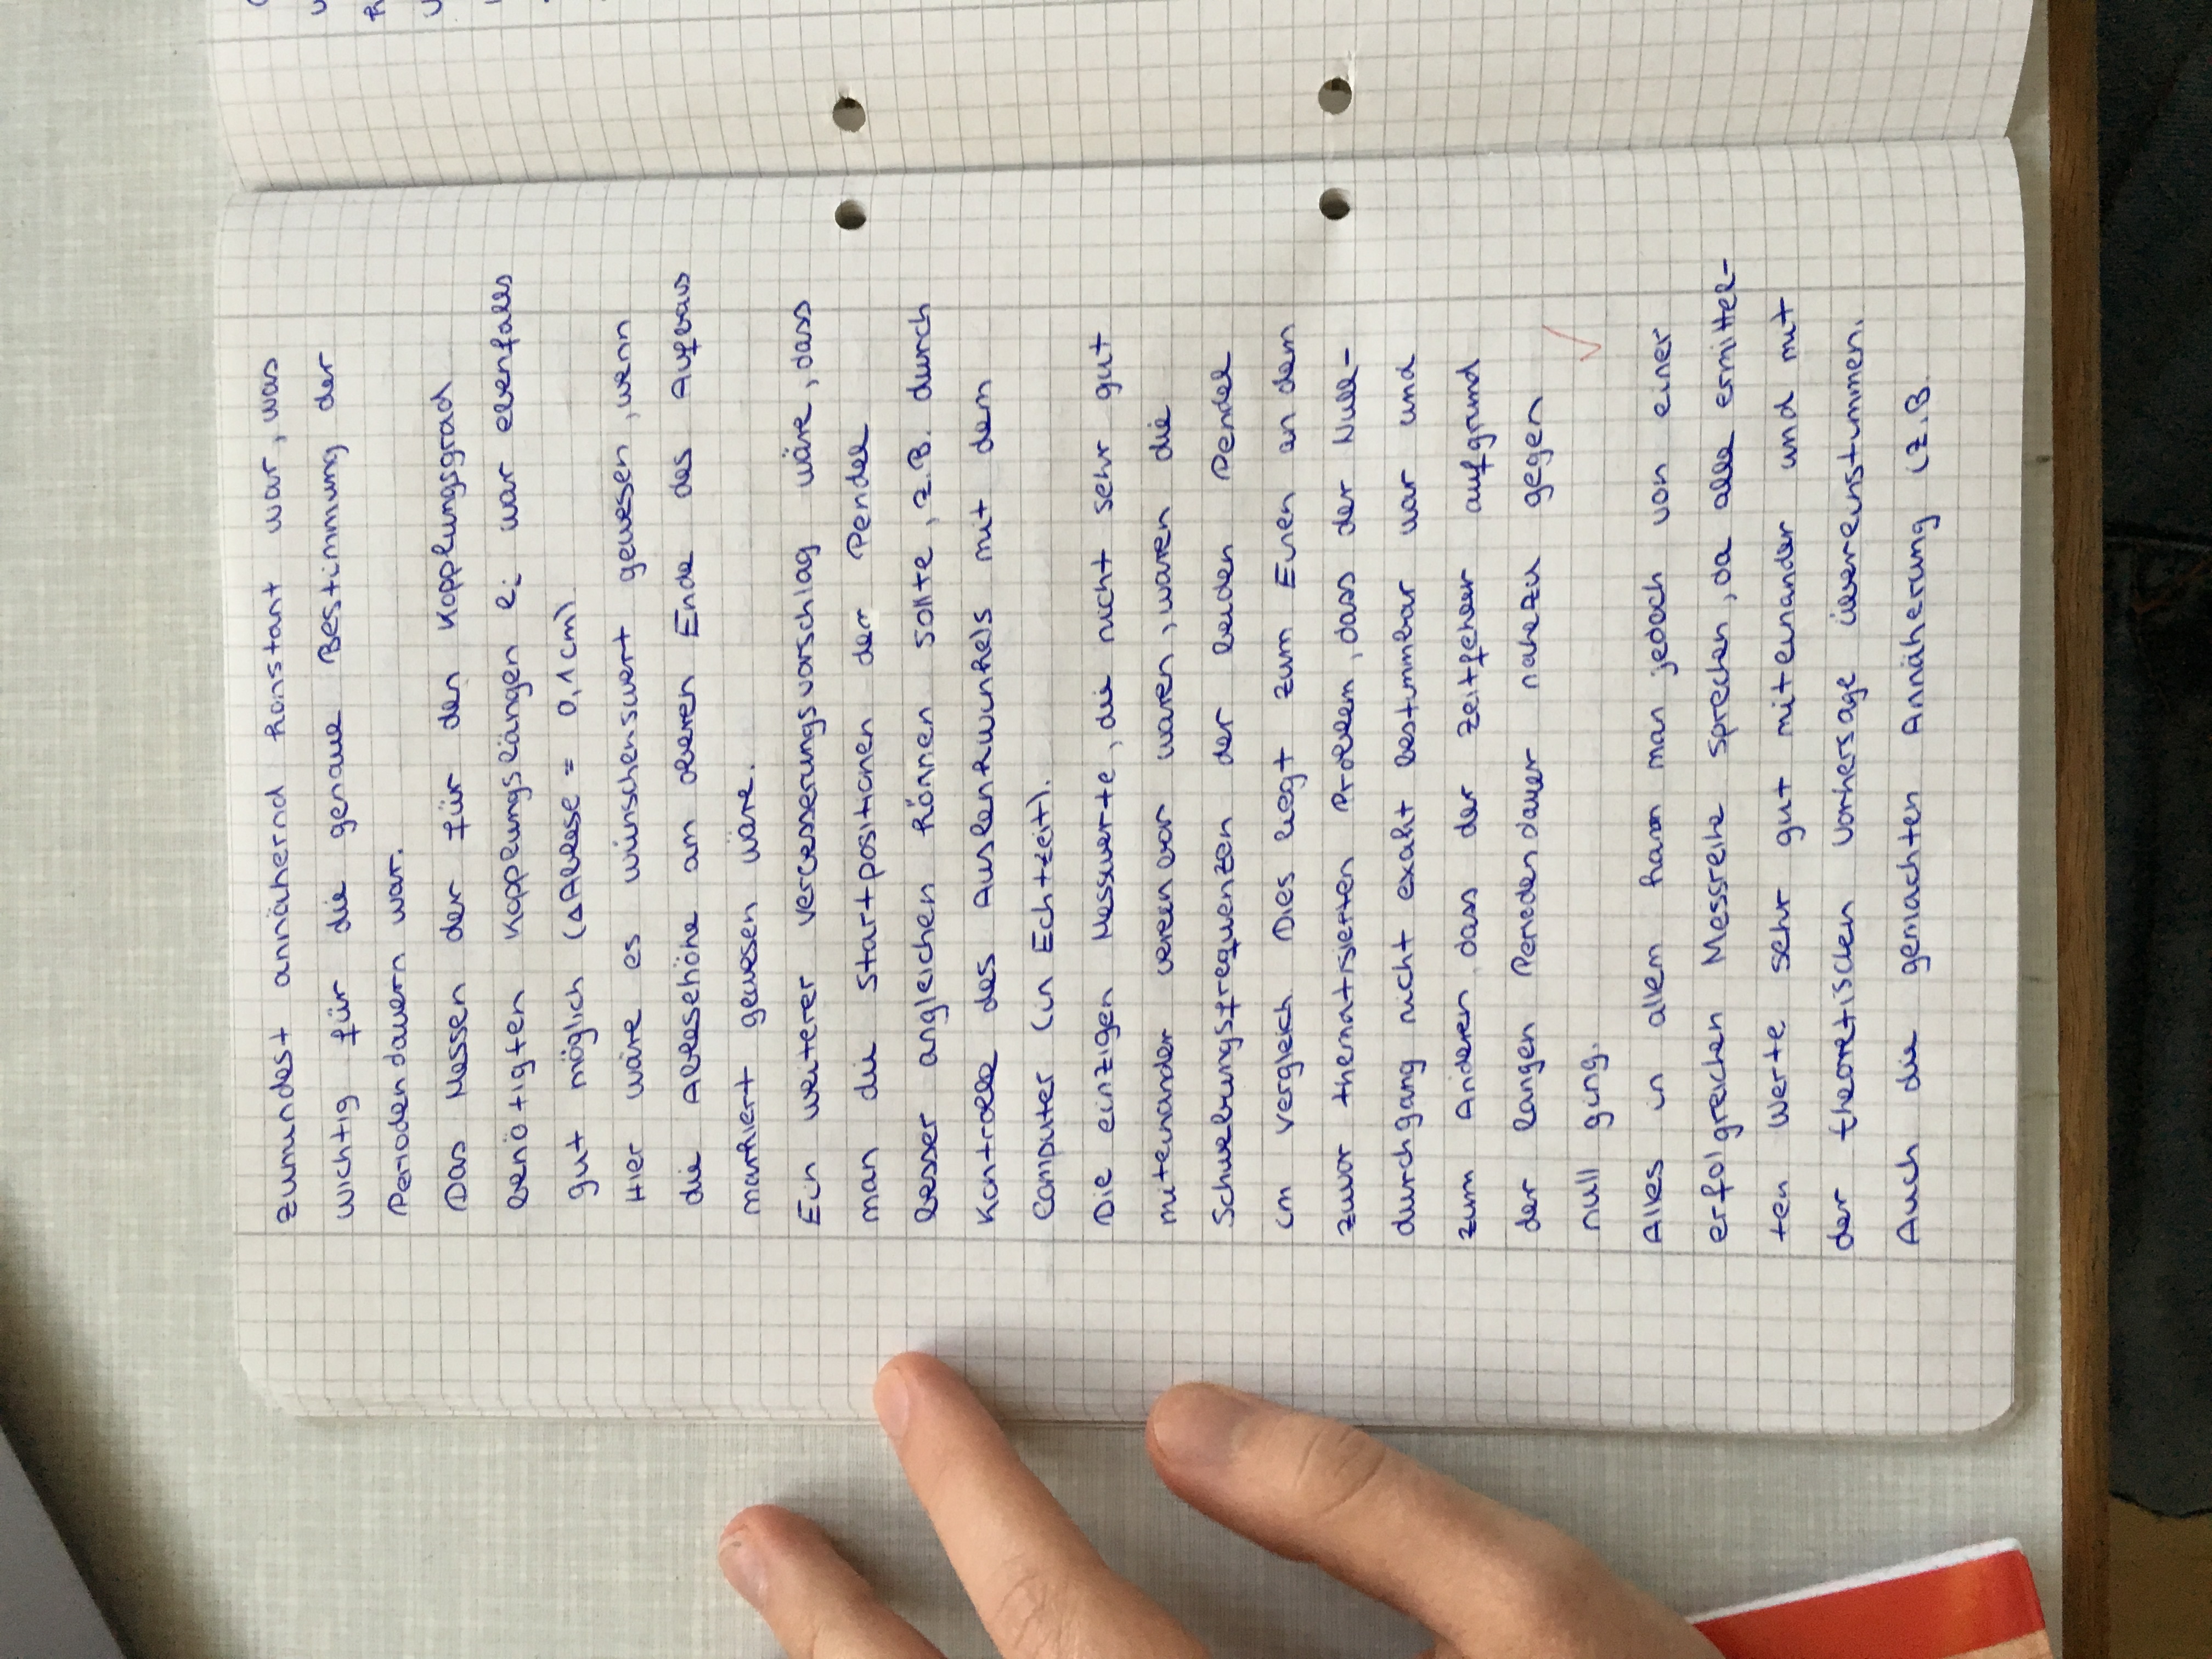 zumindest annähernd konstant war, was
wichtig für die genaue Bestimmung der
Periodendauern war.
Das Messen der für den Kopplungsgrad
benötigten Kopplungslängen li war ebenfalls
gut möglich (ΔAblese = 0,1cm)
Hier wäre es wünschenswert gewesen, wenn
die Ablesehöhe am oberen Ende des Aufbaus
markiert gewesen wäre.
Ein weiterer Verbesserungsvorschlag wäre, dass
man die Startpositionen der Pendel
besser angleichen können sollte, z.B. durch
Kontrolle des Auslenkwinkels mit dem
Computer (in Echtzeit).
Die einzigen Messwerte, die nicht sehr gut
miteinander vereinbar waren, waren die
Schwebungsfrequenzen der beiden Pendel
im Vergleich. Dies liegt zum Einen an dem
zuvor thematisierten Problem, dass der Null-
durchgang nicht exakt bestimmbar war und
zum Anderen, dass der Zeitfehler aufgrund
der langen Periodendauer nahezu gegen
null ging.
Alles in allem kann man jedoch von einer
erfolgreichen Messreihe sprechen, da alle ermittel-
ten Werte sehr gut miteinander und mit
der theoretischen Vorhersage übereinstimmen.
Auch die gemachten Annäherung (z.B.